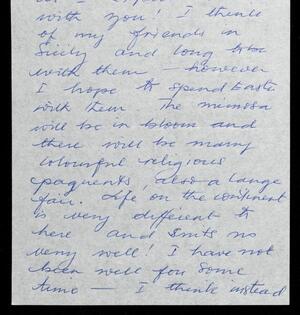 with you! I think
of my friends in
Sicily and long to be
with them — however
I hope to spend Easter
with them. The mimosa
will be in bloom and
there will be many
colourful religious
pagents, also a large
fair. Life on the continent
is very different to
here and suits me
very well! I have not
been well for some
time — I think instead